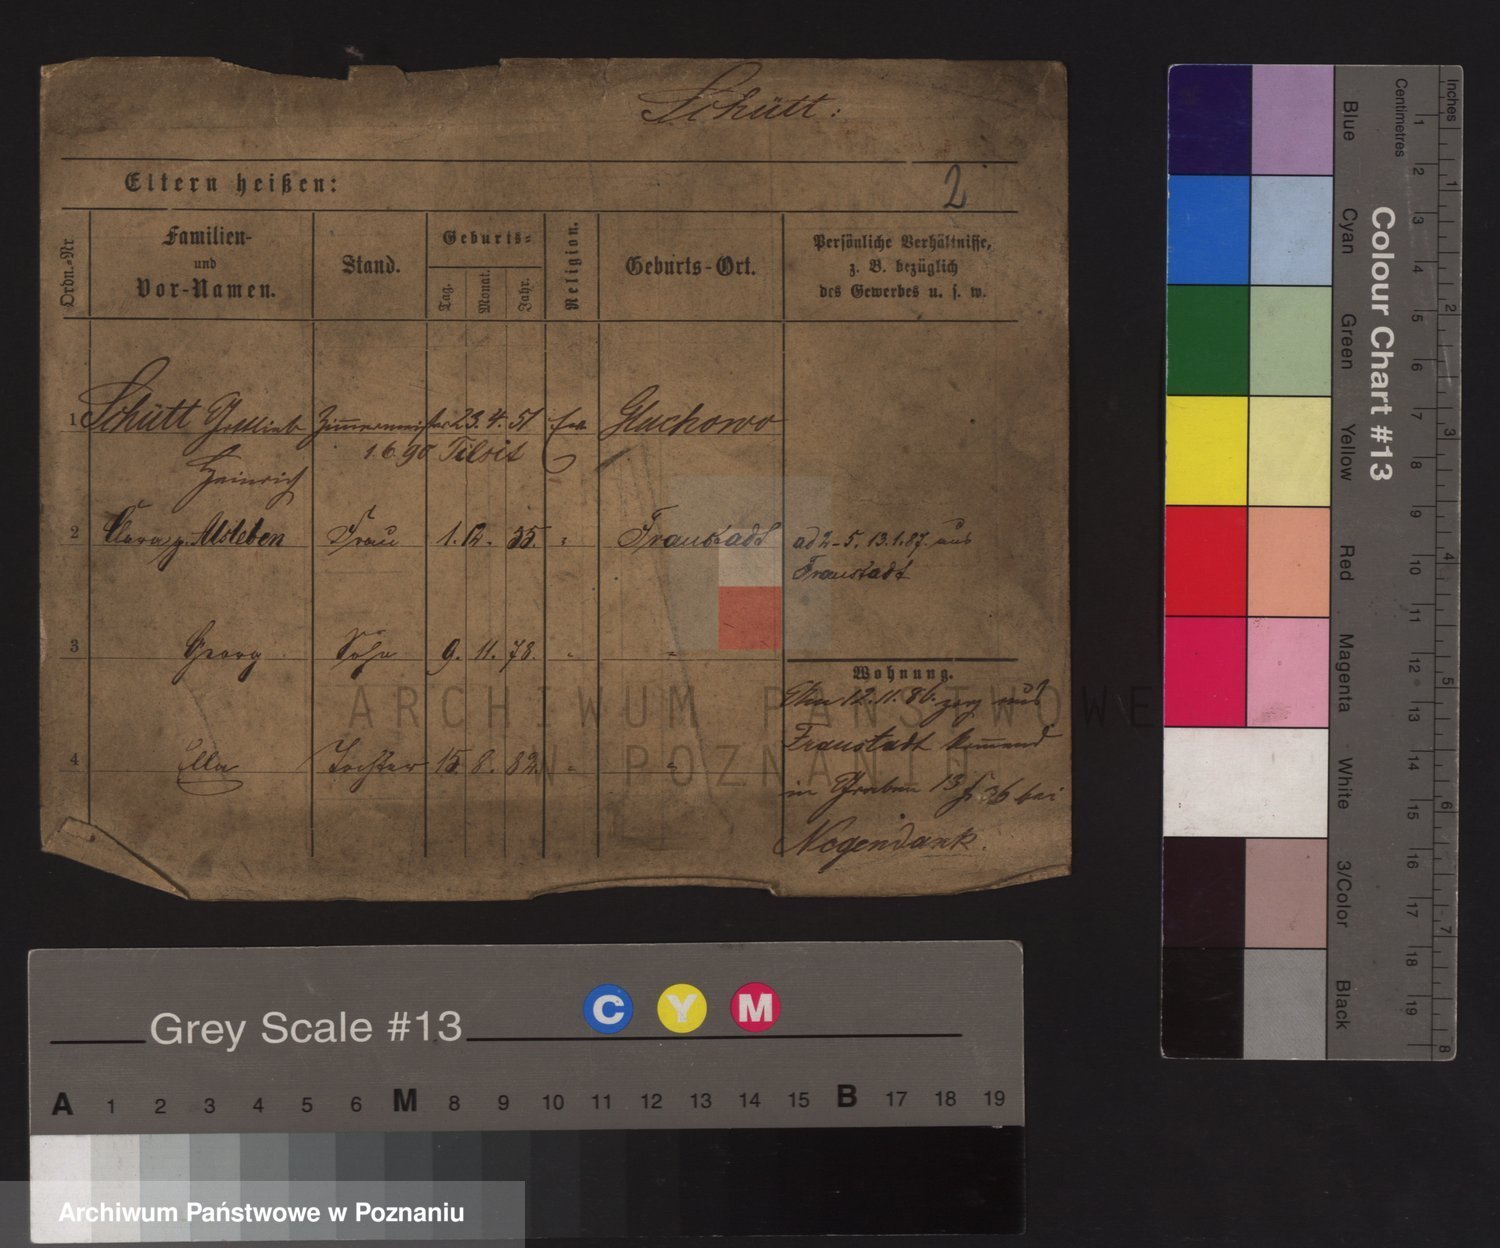 Schütt:
Eltern heißen:
2
Ordn.-Nr
Familien-
und
Vor-Namen.
Stand.
Geburts-
Tag.
Monat.
Jahr.
Religion.
Geburts-Ort.
Persönliche Verhältnisse,
z. B. bezüglich
des Gewerbes u. s. w.
1 Schütt Gottlieb Zimmermeister 23. 4. 51 ev Gluchowo
1.6.90 Tilsit
Heinrich
2 Clara g. Alsleben Frau 1. 12. 55. " Fraustadt ad 2-5. 13.1.87. aus
Fraustadt
3 Georg Sohn 9. 11. 78. " "
Wohnung.
12.11.86. aus
4 Ella Tochter 15. 8. 82. " "
Fraustadt kommend
in Graben 13 bei
Nogendank.
ARCHIWUM PAŃSTWOWE
W POZNANIU
Colour Chart #13
Blue
Cyan
Green
Yellow
Red
Magenta
White
3/Color
Black
Centimetres
1 2 3 4 5 6 7 8 9 10 11 12 13 14 15 16 17 18 19
Inches
1 2 3 4 5 6 7 8
Grey Scale #13
C Y M
A 1 2 3 4 5 6 M 8 9 10 11 12 13 14 15 B 17 18 19
Archiwum Państwowe w Poznaniu